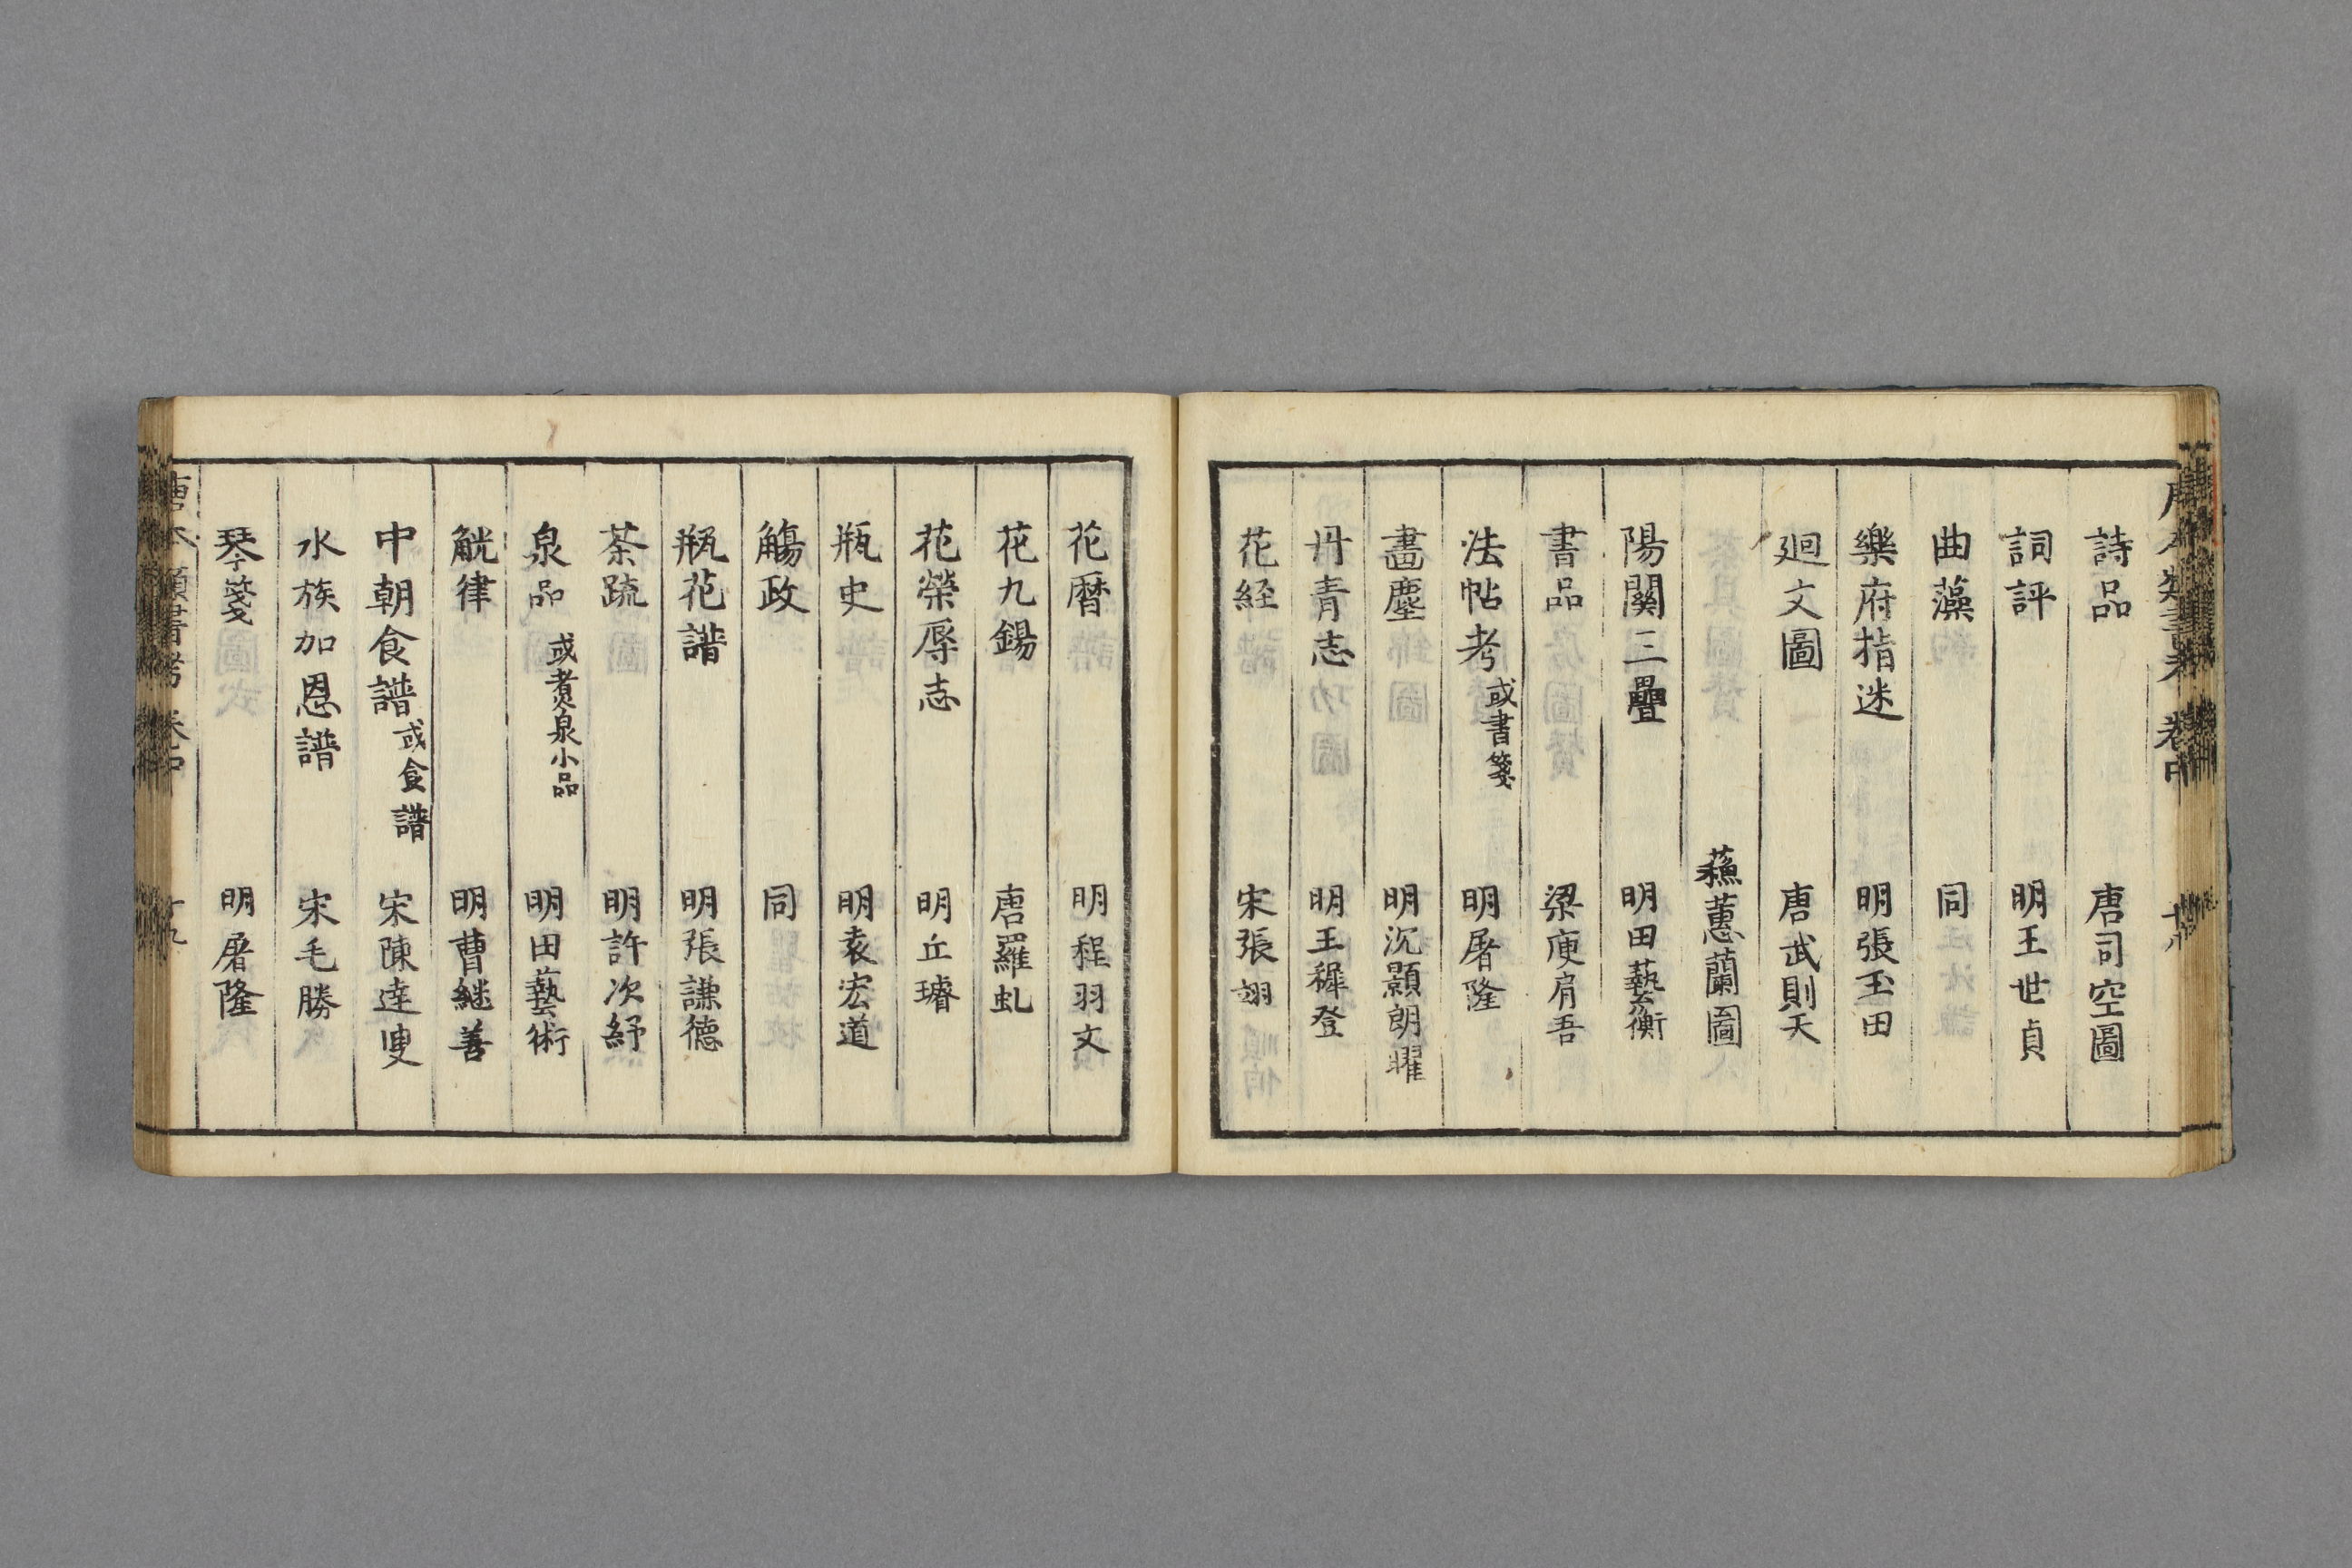 詩品 唐司空圖
詞評 明王世貞
曲藻 同
樂府指迷 明張玉田
廻文圖 唐武則天
蘓蕙蘭圖
陽關三疊 明田藝衡
書品 梁庾肩吾
法帖考 或書箋 明屠隆
畵塵 明沉顥朗曜
丹青志 明王穉登
花経 宋張翊
花暦 明程羽文
花九錫 唐羅虬
花榮辱志 明丘璿
瓶史 明袁宏道
觴政 同
瓶花譜 明張謙德
茶疏 明許次紓
泉品 或煮泉小品 明田藝術
觥律 明曹継善
中朝食譜 或食譜 宋陳達叟
水族加恩譜 宋毛勝
琴箋 明屠隆
唐本類書考 卷中 十九